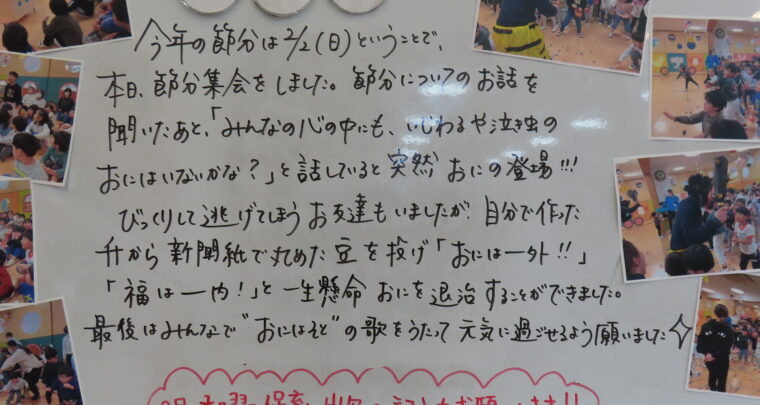 今年の節分は2/2(日)ということで、
本日、節分集会をしました。節分についてのお話を
聞いたあと、「みんなの心の中にも、いじわるや泣き虫の
おにはいないかな？」と話していると突然おにの登場!!!
びっくりして逃げてしまうお友達もいましたが、自分で作った
升から新聞紙で丸めた豆を投げ「おにはー外!!」
「福はー内!」と一生懸命おにを退治することができました。
最後はみんなで"おにはそと"の歌をうたって元気に過ごせるよう願いました✧